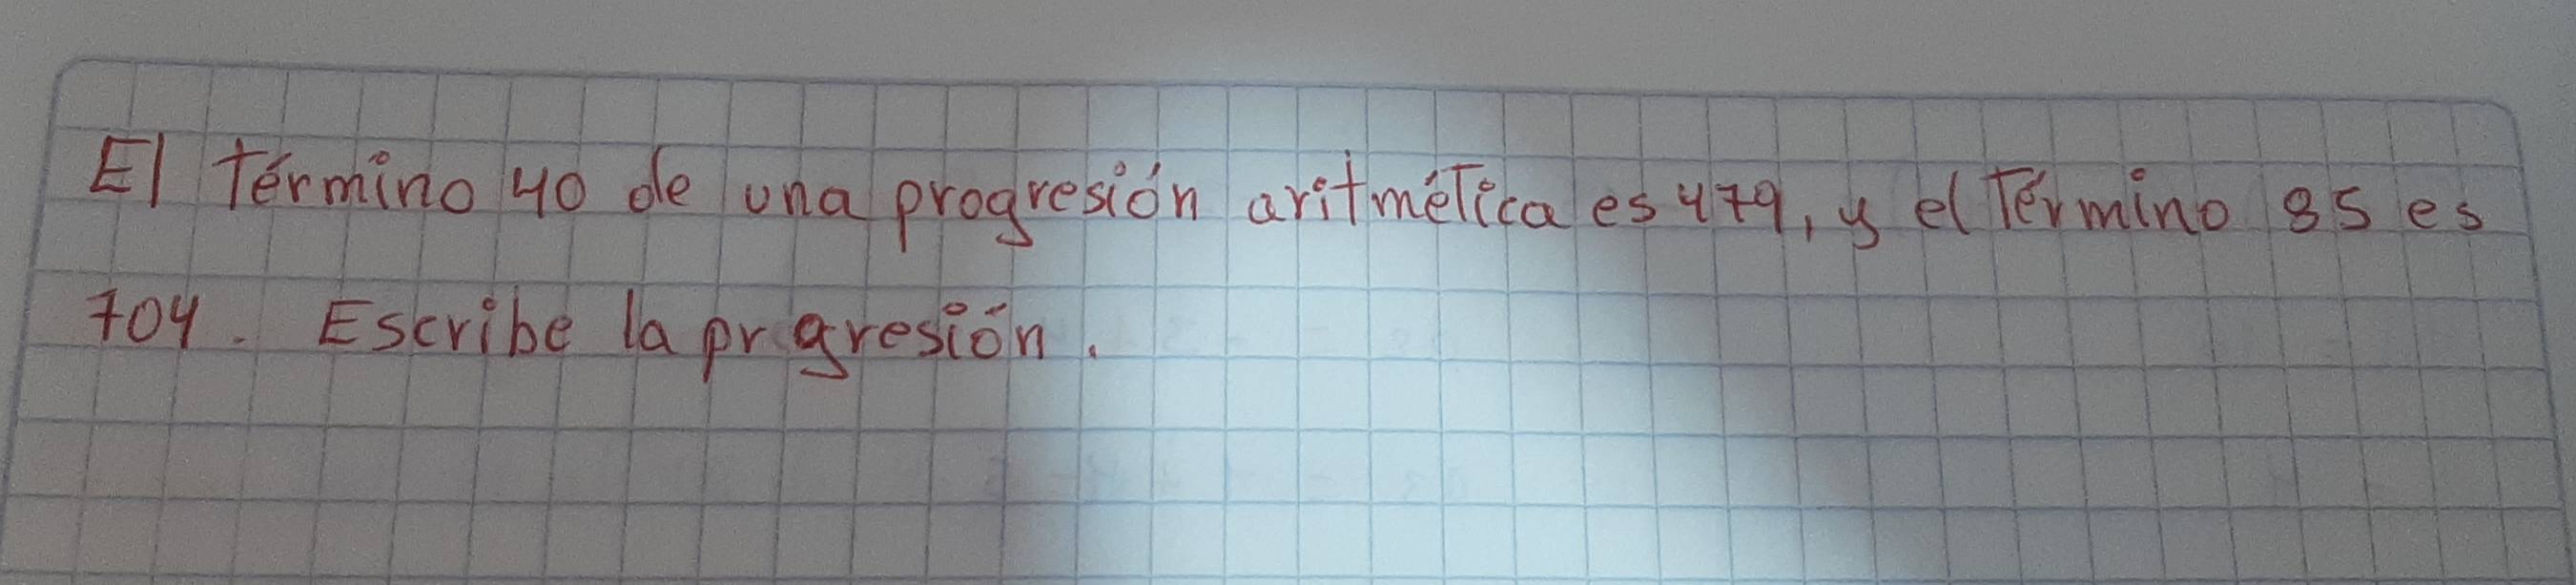 El término 40 de una progresión aritmética es 479, y el término 85 es
704. Escribe la prgresión.